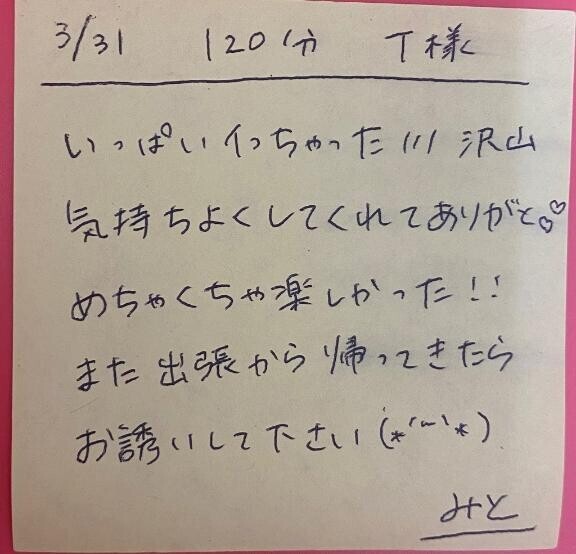 3/31 120分 T様
いっぱいイっちゃった/// 沢山
気持ちよくしてくれてありがと♡♡
めちゃくちゃ楽しかった!!
また出張から帰ってきたら
お誘いして下さい(*'~'*)
みと